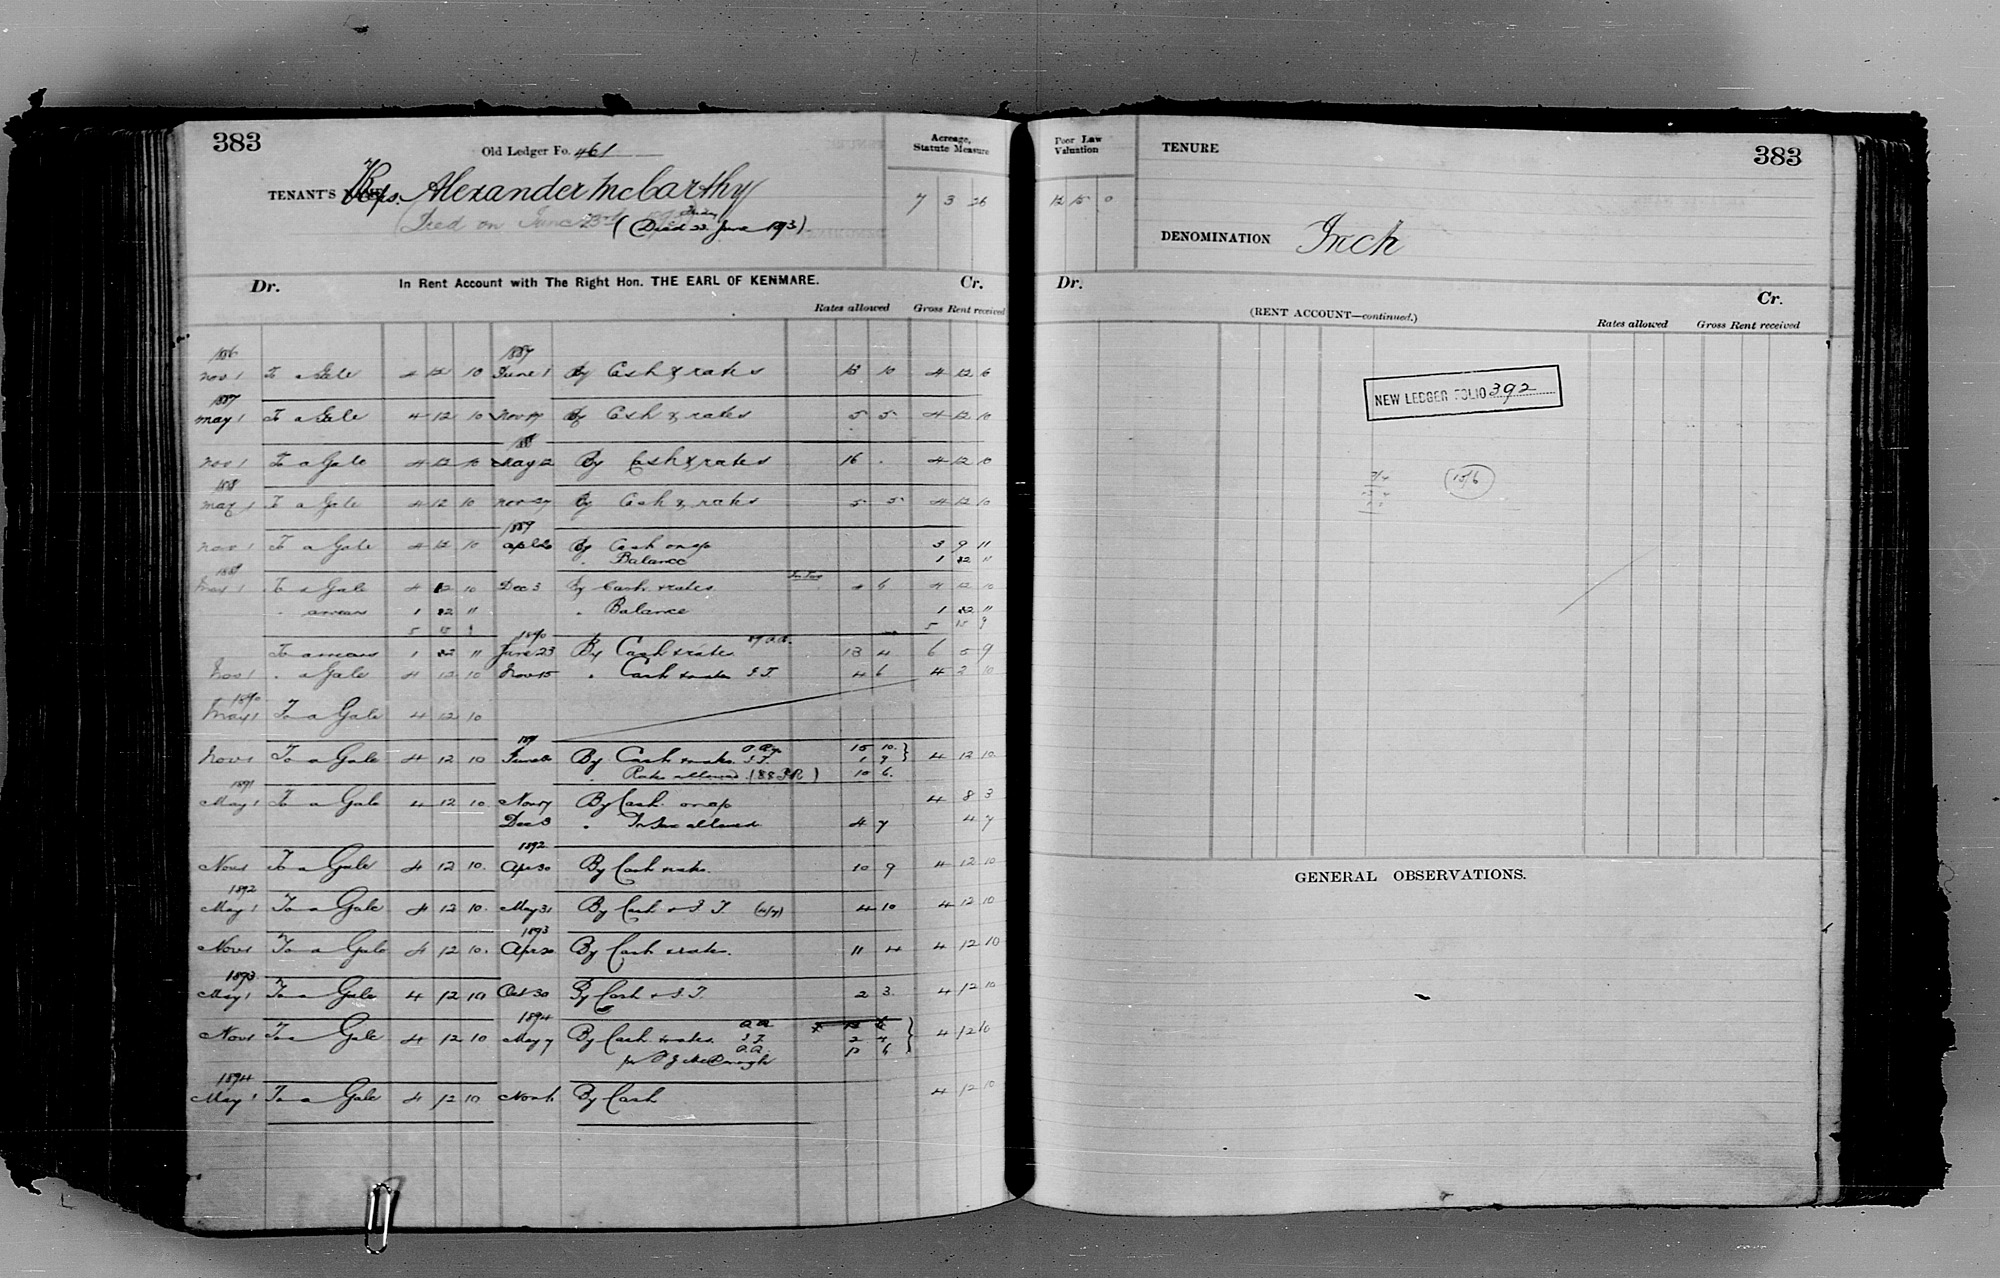 383
Old Ledger Fo. 461
TENANT'S NAME Reps. Alexander McCarthy
(Died on June 23rd
(Died 23 June 1893)
Acreage, Statute Measure
7 3 26
Dr. In Rent Account with The Right Hon. THE EARL OF KENMARE. Cr.
Rates allowed Gross Rent received
1886 1887
Nov 1 To a Gale 4 12 10 June 1 By Cash & rates 13 10 4 12 10
1887
May 1 To a Gale 4 12 10 Nov 17 By Cash & rates 5 5 4 12 10
1888
Nov 1 To a Gale 4 12 10 May 12 By Cash & rates 16 . 4 12 10
1888
May 1 To a Gale 4 12 10 Nov 27 By Cash & rates 5 5 4 12 10
1889
Nov 1 To a Gale 4 12 10 Apl 20 By Cash on a/c 3 9 11
" Balance 1 2 11
1889
May 1 To a Gale 4 12 10 Dec 3 By Cash & rates 4 6 4 12 10
" arrears 1 2 11 " Balance 1 2 11
5 15 9 5 15 9
1890
To arrears 1 2 11 June 23 By Cash & rates 13 4 6 5 9
Nov 1 " a Gale 4 12 10 Nov 15 " Cash & rates I.T. 4 6 4 2 10
1890
May 1 To a Gale 4 12 10
1891
Nov 1 To a Gale 4 12 10 June By Cash & rates 15 10 } 4 12 10
I.T. 1 9
" Rates allowed (88 P.R.) 10 6
1891
May 1 To a Gale 4 12 10 Nov 7 By Cash on a/c 4 8 3
Dec 3 " In Tax allowed 4 7 4 7
1892
Nov 1 To a Gale 4 12 10 Apr 30 By Cash & rates 10 9 4 12 10
1892
May 1 To a Gale 4 12 10 May 31 By Cash & I.T. 4 10 4 12 10
1893
Nov 1 To a Gale 4 12 10 Apr 20 By Cash & rates. 11 4 4 12 10
1893
May 1 To a Gale 4 12 10 Oct 30 By Cash & I.T. 2 3 4 12 10
1894
Nov 1 To a Gale 4 12 10 May 7 By Cash & rates } 4 12 10
I.T. 2 4
12 6
1894
May 1 To a Gale 4 12 10 Nov By Cash 4 12 10
Poor Law Valuation
12 15 0
TENURE
383
DENOMINATION Inch
Dr. Cr.
(RENT ACCOUNT—continued.)
Rates allowed Gross Rent received
NEW LEDGER FOLIO 392
15/6
GENERAL OBSERVATIONS.